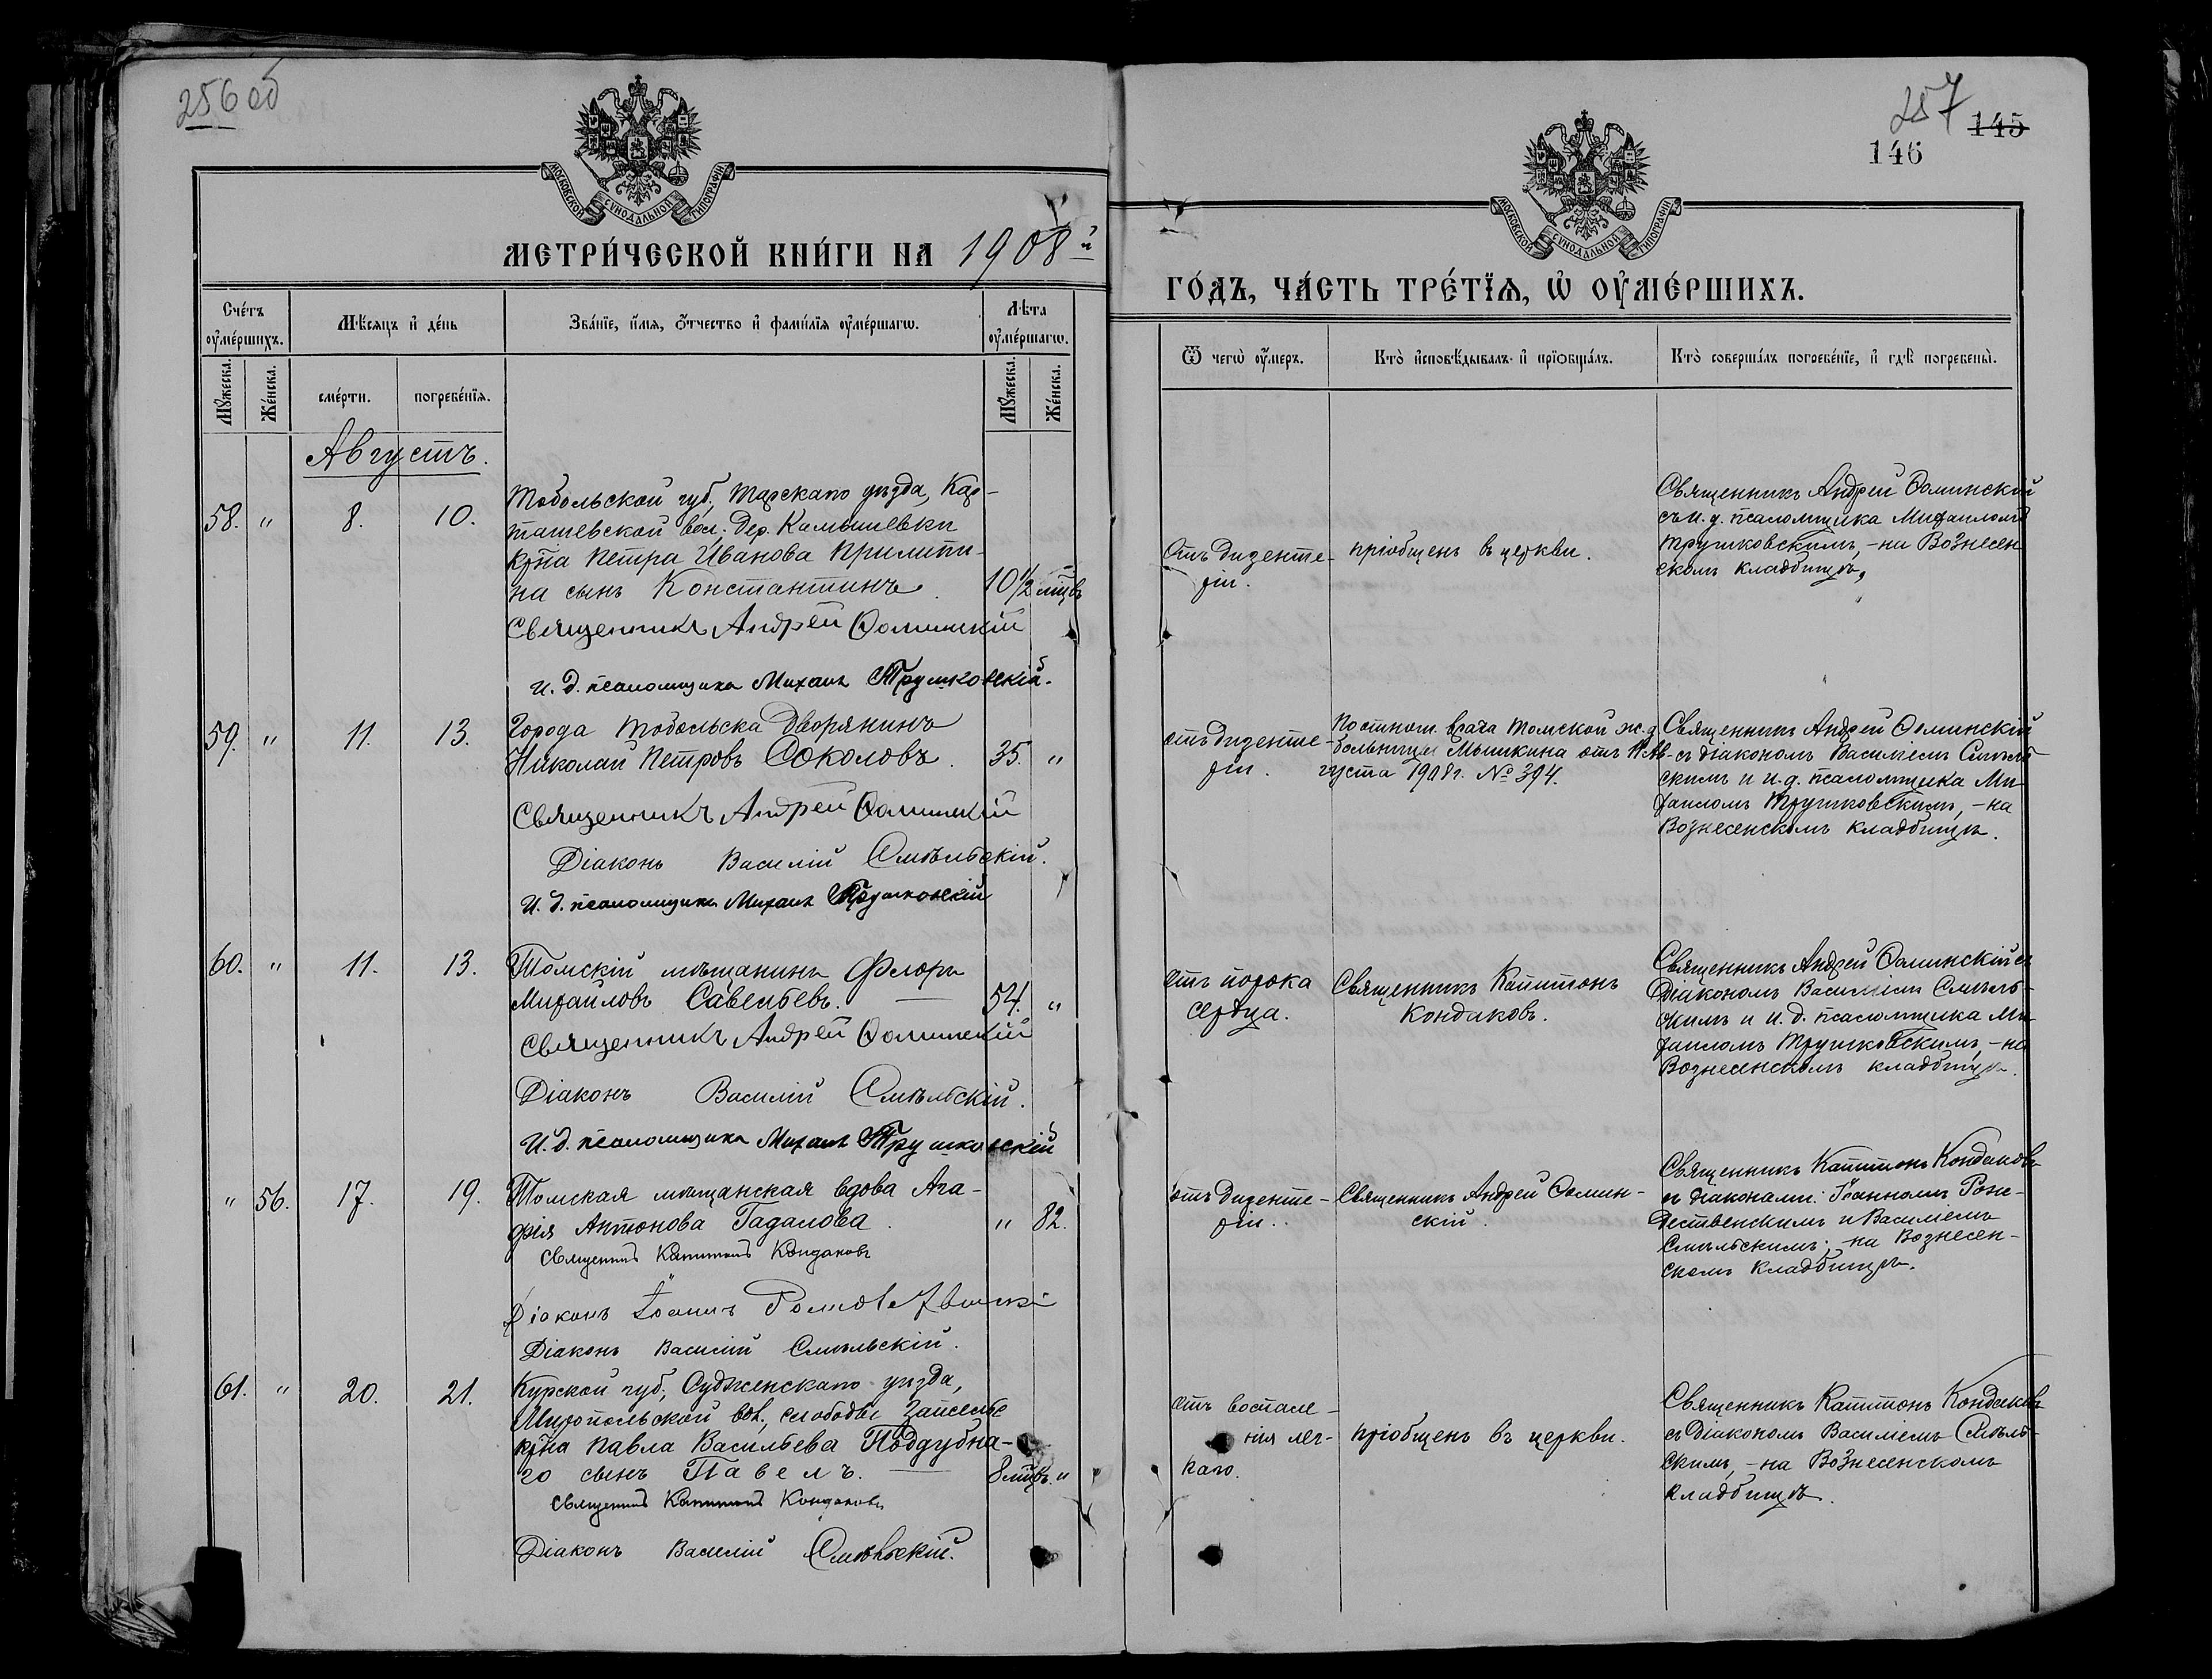 256 об
МОСКОВСКОЙ СѴНОДАЛЬНОЙ ТИПОГРАФІИ
МЕТРИ́ЧЕСКОЙ КНИ́ГИ НА 1908й
Сче́тъ оу҆ме́ршихъ.
Мѣ́сяцъ и҆ де́нь
Зва́нїе, и҆́мѧ, ѻ҆́тчество и҆ фами́лїѧ оу҆ме́ршагѡ.
Лѣ́та оу҆ме́ршагѡ.
Мꙋ́жеска.
Же́нска.
сме́рти.
погребе́нїѧ.
Мꙋ́жеска.
Же́нска.
Августъ.
58. " 8. 10.
Тобольской губ., Тарскаго уѣзда, Кар-
ташевской вол., дер. Камышевки
кр̃на Петра Иванова Прилипи-
на сынъ Константинъ. 10½ мцвъ
Священникъ Андрей Ѳоминскій
И. д. псаломщика Михаилъ Трушковскій.
59. " 11. 13.
Города Тобольска Дворянинъ
Николай Петровъ Соколовъ. 35. "
Священникъ Андрей Ѳоминскій
Діаконъ Василій Смѣльскій.
И. д. псаломщика Михаилъ Трушковскій
60. " 11. 13.
Томскій мѣщанинъ Флоръ
Михайловъ Савельевъ. 54. "
Священникъ Андрей Ѳоминскій
Діаконъ Василій Смѣльскій.
И. д. псаломщика Михаилъ Трушковскій
" 56. 17. 19.
Томская мѣщанская вдова Ага-
фія Антонова Гадалова. " 82.
Священникъ Капитонъ Кондаковъ
Діаконъ Іоаннъ Рождественскій
Діаконъ Василій Смѣльскій.
61. " 20. 21.
Курской губ., Судженскаго уѣзда,
Миропольской вол., слободы Запселье
кр̃на Павла Васильева Поддубна-
го сынъ Павелъ. 8 мцвъ. "
Священникъ Капитонъ Кондаковъ
Діаконъ Василій Смѣльскій.
257
145
146
МОСКОВСКОЙ СѴНОДАЛЬНОЙ ТИПОГРАФІИ
ГО́ДЪ, ЧА́СТЬ ТРЕ́ТЇѦ, Ѡ҆ ОУ҆МЕ́РШИХЪ.
Ѿ чегѡ̀ оу҆́меръ.
Кто̀ и҆сповѣ́дывалъ и҆ прїѡбща́лъ.
Кто̀ соверша́лъ погребе́нїе, и҆ гдѣ̀ погребены̀.
Отъ дизенте-
ріи.
Пріобщенъ въ церкви.
Священникъ Андрей Ѳоминскій
съ и. д. псаломщика Михаиломъ
Трушковскимъ, - на Вознесен
скомъ кладбищѣ.
Отъ дизенте-
ріи.
По отнош. врача Томской ж.д.
больницы Мышкина отъ 11 Ав-
густа 1908 г. № 394.
Священникъ Андрей Ѳоминскій
съ діакономъ Василіемъ Смѣль-
скимъ и и. д. псаломщика Ми-
хаиломъ Трушковскимъ, - на
Вознесенскомъ кладбищѣ.
Отъ порока
сердца.
Священникъ Капитонъ
Кондаковъ.
Священникъ Андрей Ѳоминскій съ
Діакономъ Василіемъ Смѣль-
скимъ и и. д. псаломщика Ми-
хаиломъ Трушковскимъ, - на
Вознесенскомъ кладбищѣ.
Отъ дизенте-
ріи.
Священникъ Андрей Ѳомин-
скій.
Священникъ Капитонъ Кондаковъ
съ діаконами: Іоанномъ Рож-
дественскимъ и Василіемъ
Смѣльскимъ; - на Вознесен-
скомъ кладбищѣ.
Отъ воспале-
нія лег-
каго.
Пріобщенъ въ церкви.
Священникъ Капитонъ Кондаковъ
съ Діакономъ Василіемъ Смѣль-
скимъ, - на Вознесенскомъ
кладбищѣ.